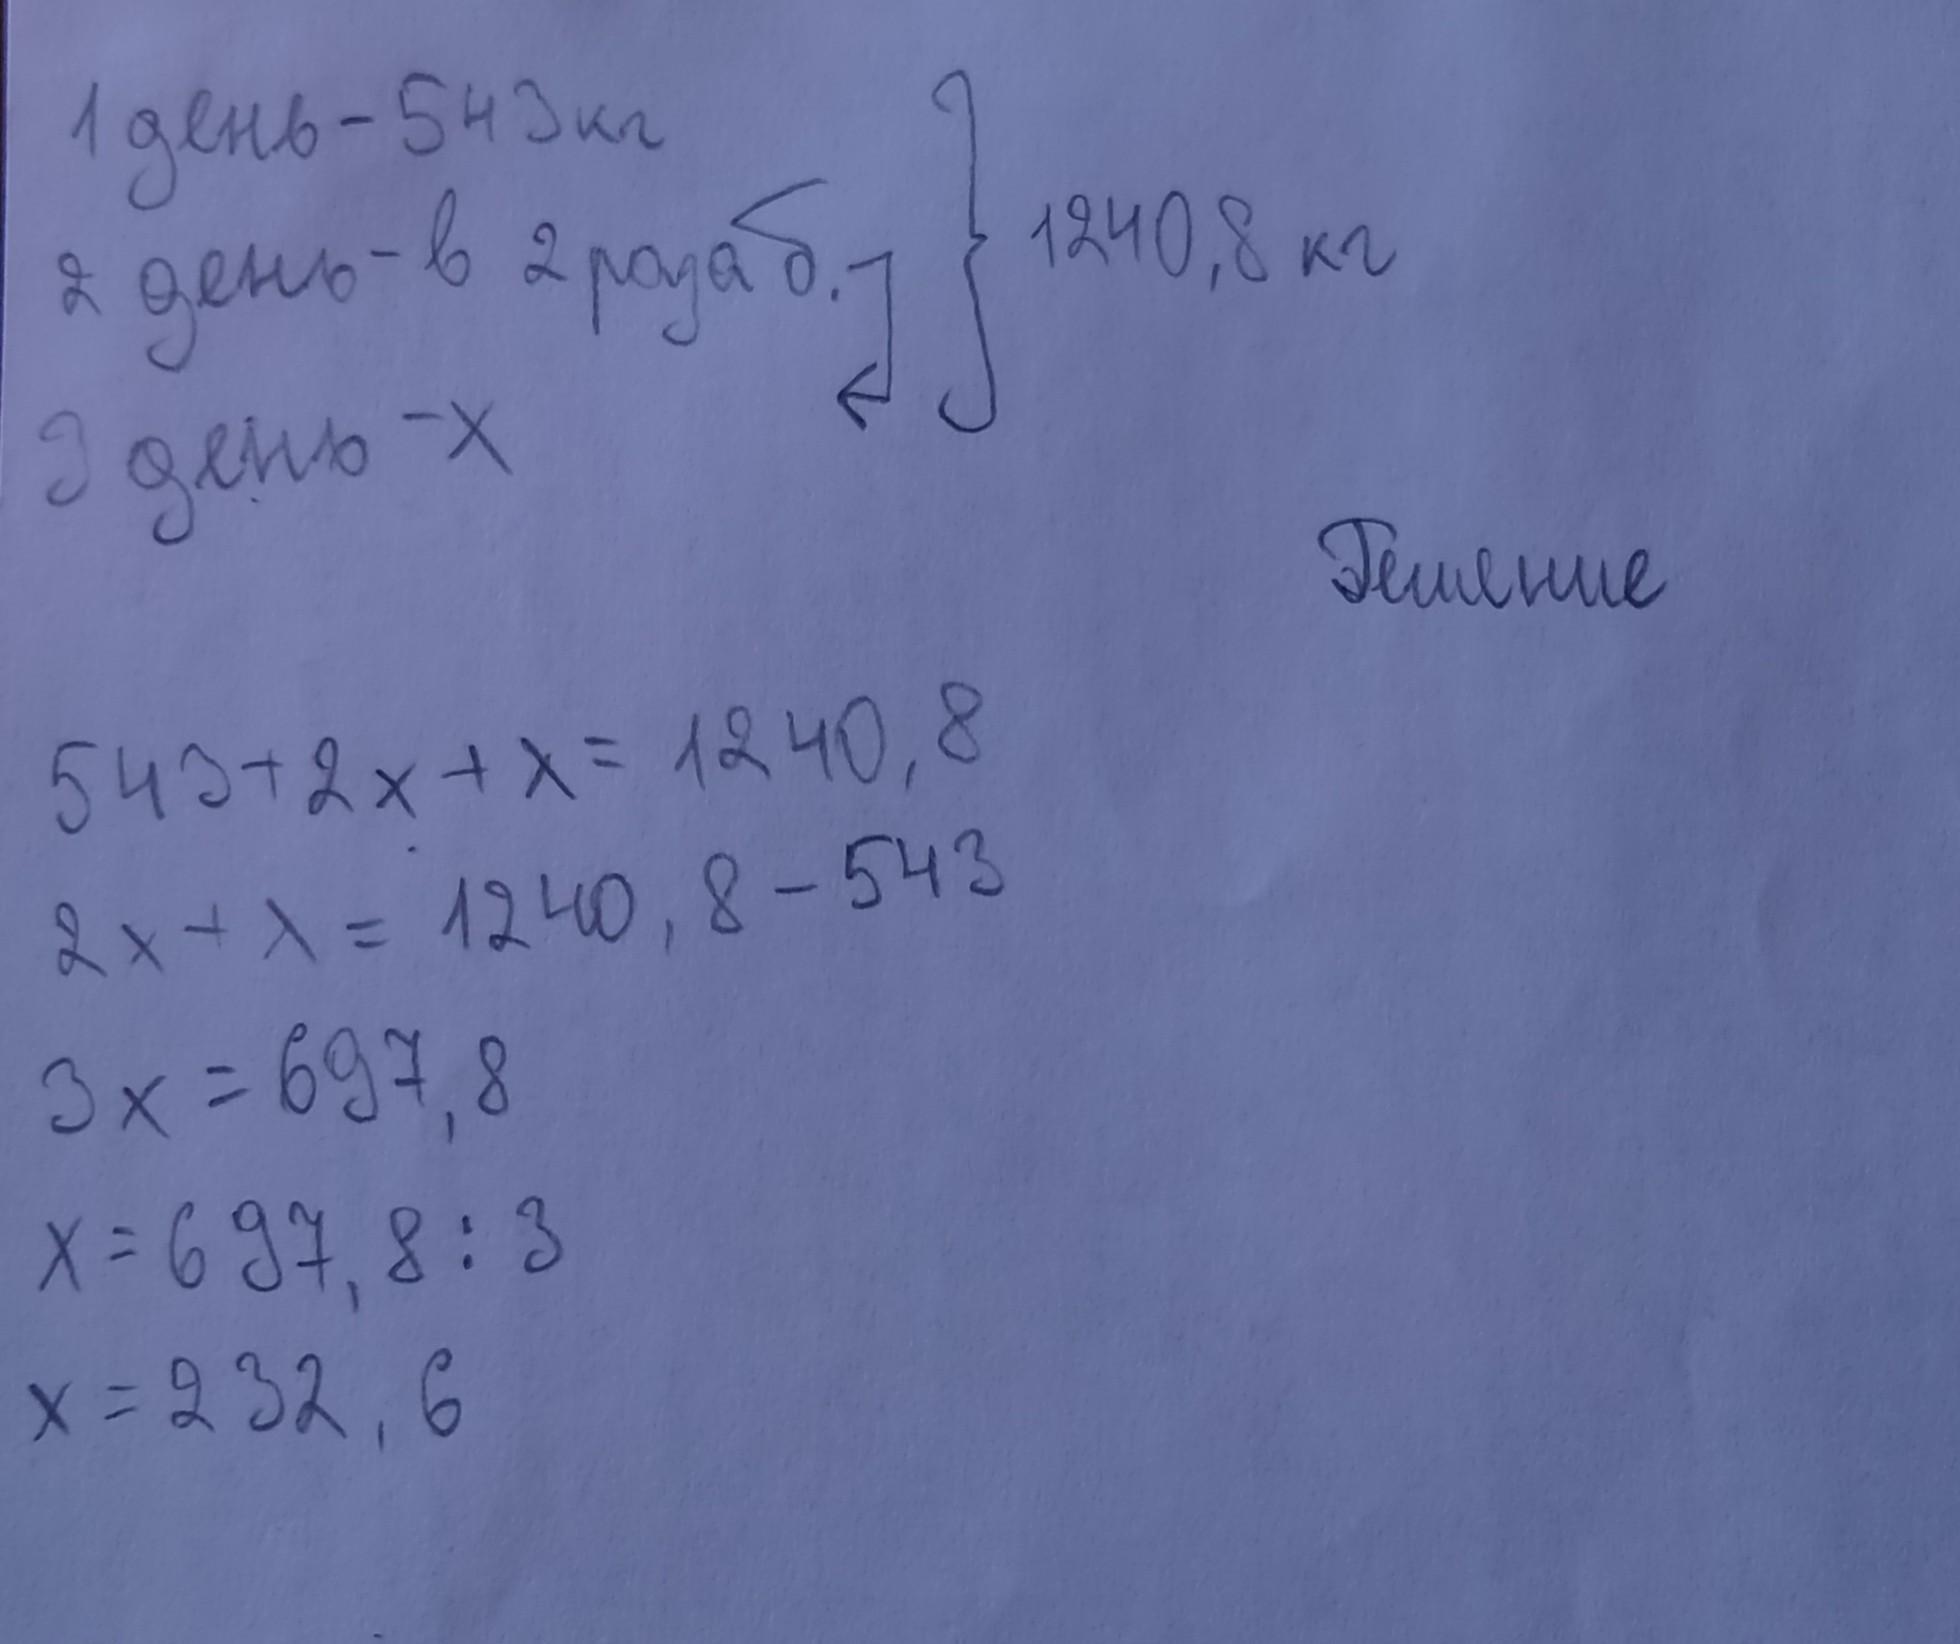 1 день - 543 кг
2 день - в 2 раза б.
1240,8 кг
3 день - x
Решение
543 + 2x + x = 1240,8
2x + x = 1240,8 - 543
3x = 697,8
x = 697,8 : 3
x = 232,6